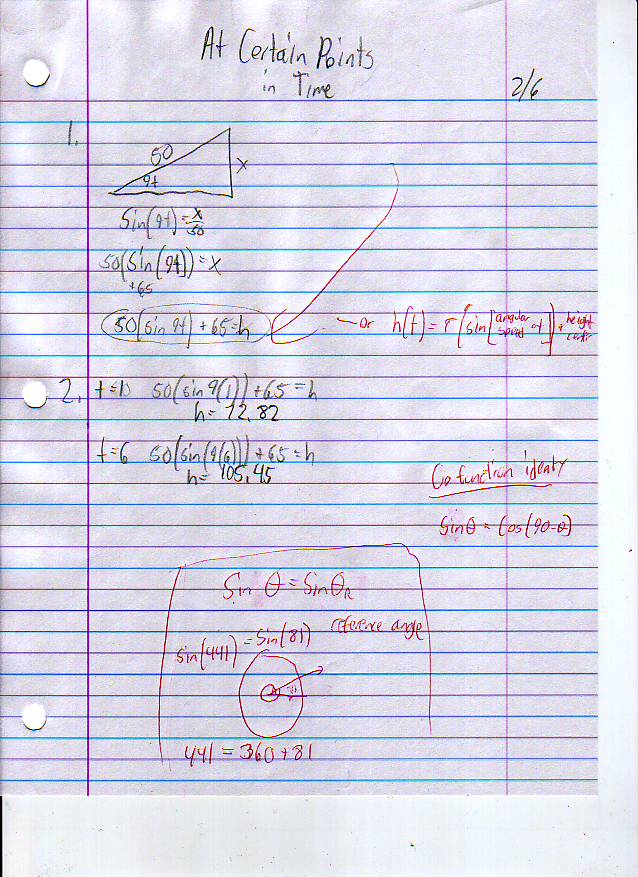 At Certain Points
in Time
2/6
1.
50
9t
x
Sin(9t) = x/50
50(Sin(9t)) = x
+65
50(sin 9t) + 65 = h
or h(t) = r(sin[angular speed · t]) + height center
2. t=1 50(sin 9(1)) + 65 = h
h = 72.82
t=6 50(sin(9(6))) + 65 = h
h = 105.45
Cofunction identy
Sinθ = Cos(90-θ)
Sin θ = Sin θR
reference angle
sin(441) = Sin(81)
441 = 360 + 81